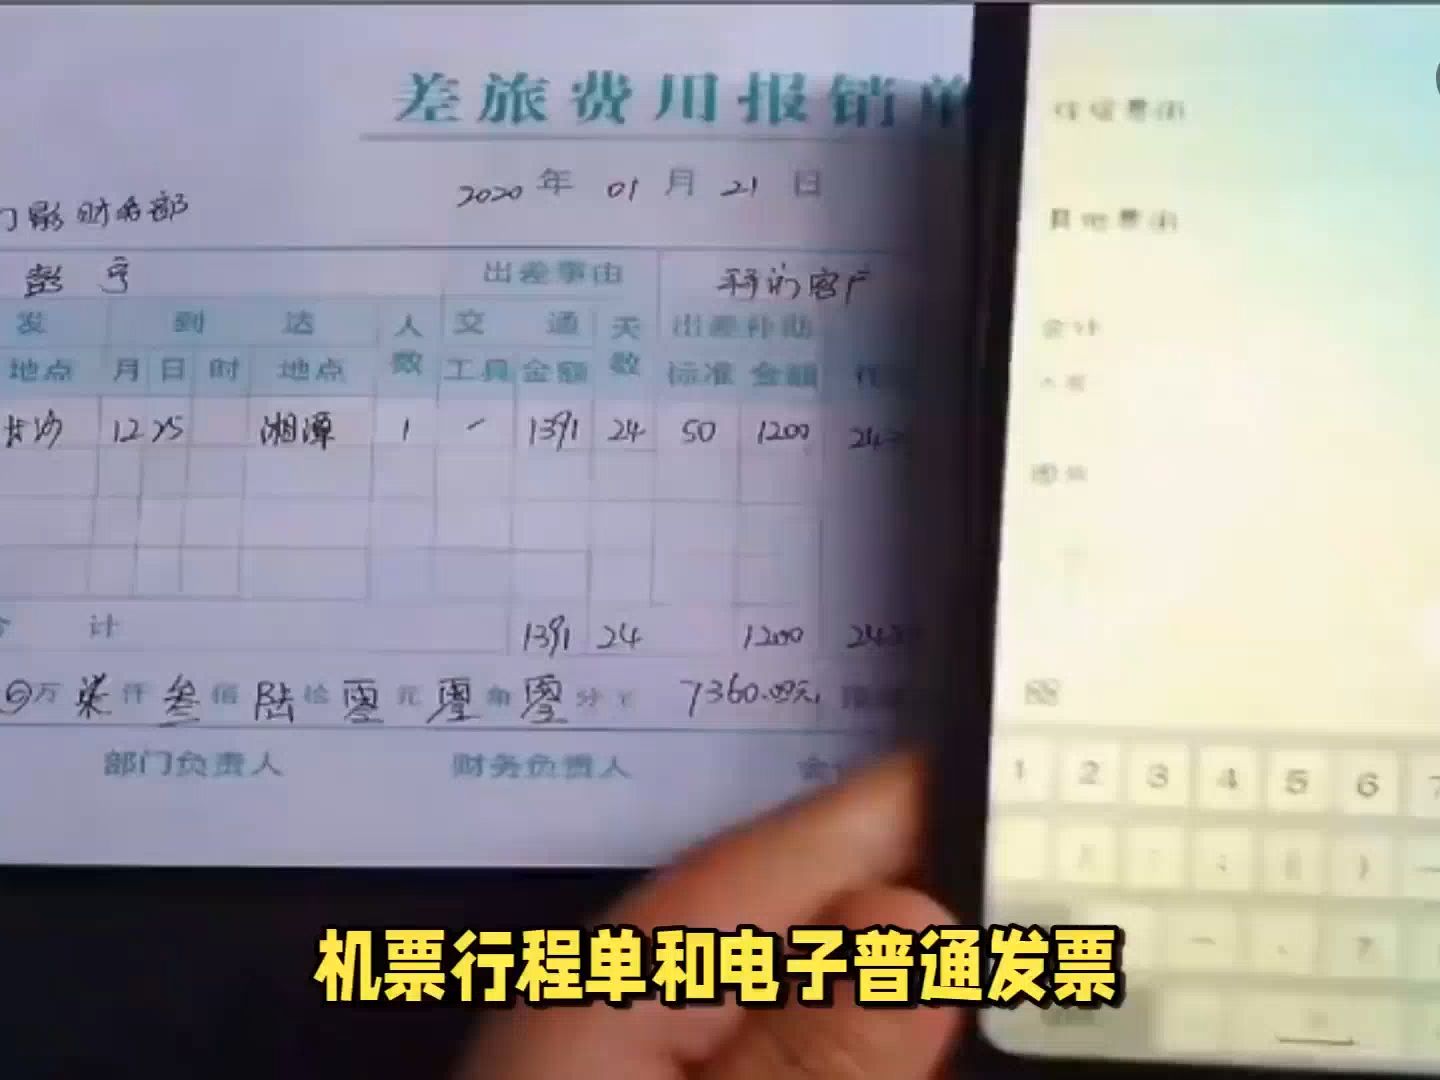 差旅费用报销单
2020年 01月 21日
门影财务部
彭宇 出差事由 客户
发 到 达 人数 交通 天数 出差补助
地点 月 日 时 地点 工具 金额 标准 金额
长沙 12 25 湘潭 1 - 1391 24 50 1200
合 计 1391 24 1200
万 柒 仟 叁 佰 陆 拾 零 元 零 角 零 分 ¥ 7360.00元
部门负责人 财务负责人 会
住宿费用
其他费用
合计
1 2 3 4 5 6 7
机票行程单和电子普通发票